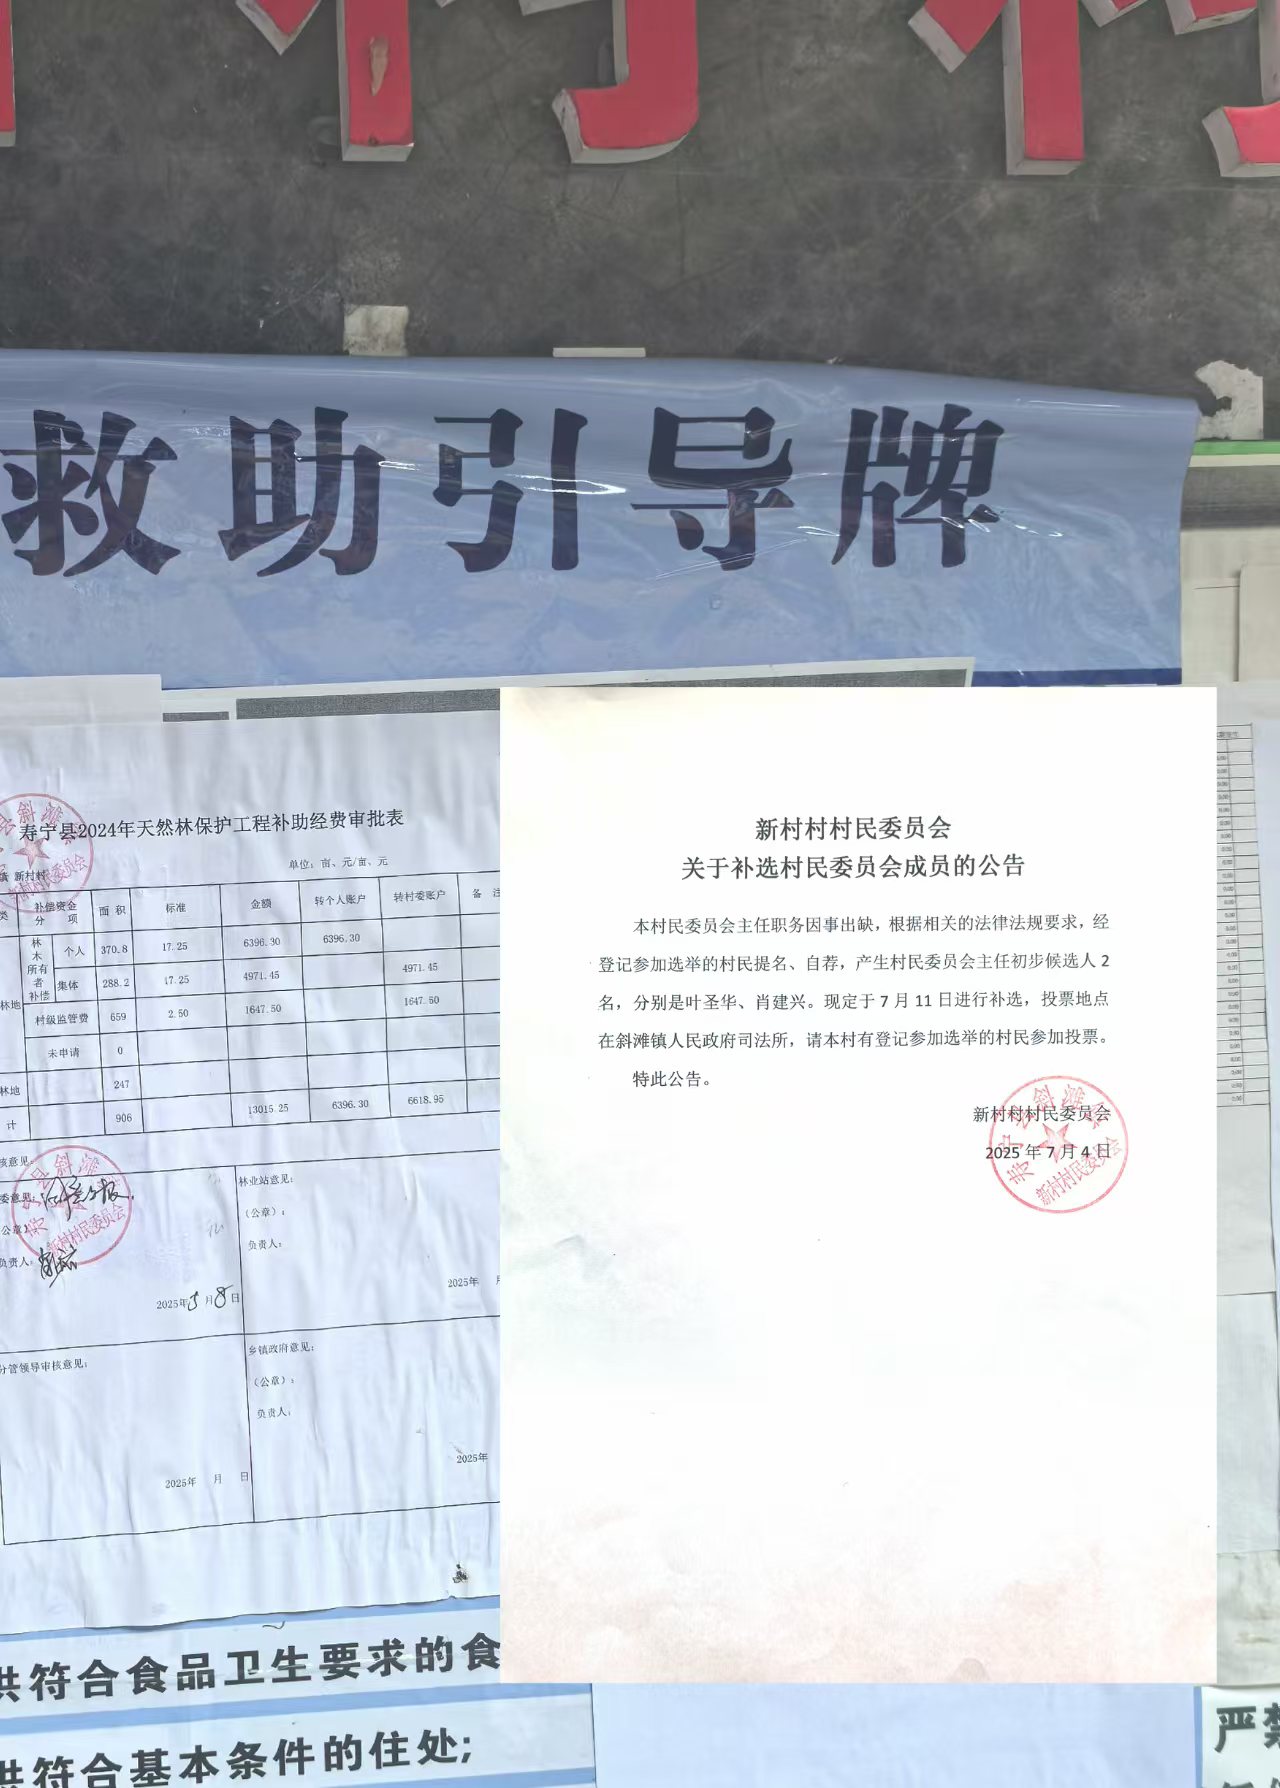 救助引导牌
寿宁县2024年天然林保护工程补助经费审批表
新村村
单位：亩、元/亩、元
类 补偿资金分项 面 积 标准 金额 转个人账户 转村委账户 备 注
林地 林木所有者补偿 个人 370.8 17.25 6396.30 6396.30
集体 288.2 17.25 4971.45 4971.45
村级监管费 659 2.50 1647.50 1647.50
未申请 0
林地 247
计 906 13015.25 6396.30 6618.95
核意见：
委意见：
（公章）
负责人：
2025年5月8日
林业站意见：
（公章）：
负责人：
2025年
分管领导审核意见：
2025年 月 日
乡镇政府意见：
（公章）：
负责人：
2025年
新村村村民委员会
关于补选村民委员会成员的公告
本村民委员会主任职务因事出缺，根据相关的法律法规要求，经
登记参加选举的村民提名、自荐，产生村民委员会主任初步候选人 2
名，分别是叶圣华、肖建兴。现定于 7 月 11 日进行补选，投票地点
在斜滩镇人民政府司法所，请本村有登记参加选举的村民参加投票。
特此公告。
新村村村民委员会
2025 年 7 月 4 日
寿宁县斜滩镇
新村村民委员会
供符合食品卫生要求的食
供符合基本条件的住处;
严禁